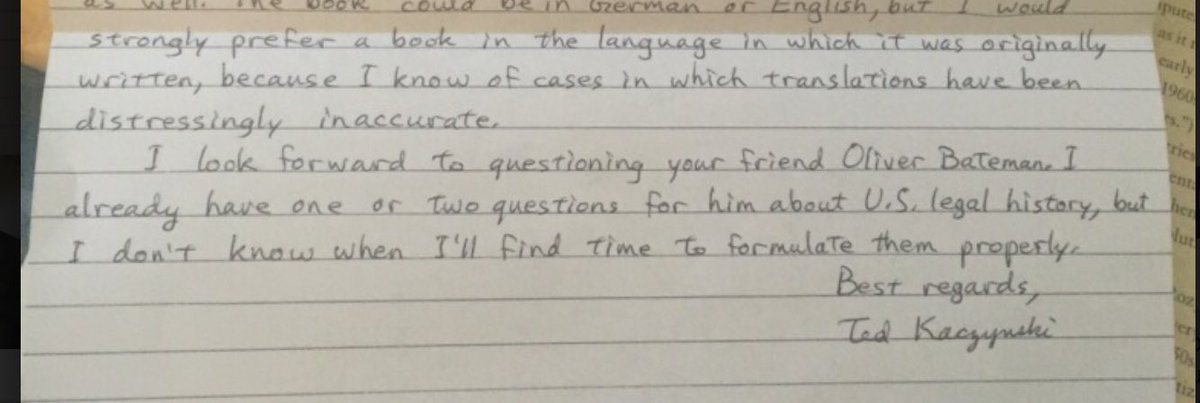 as well. The book could be in German or English, but I would
strongly prefer a book in the language in which it was originally
written, because I know of cases in which translations have been
distressingly inaccurate.
I look forward to questioning your friend Oliver Bateman. I
already have one or two questions for him about U.S. legal history, but
I don't know when I'll find time to formulate them properly.
Best regards,
Ted Kaczynski
early
1960